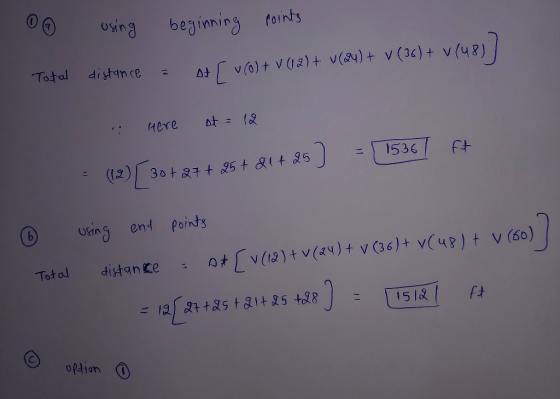 ① ⓐ using beginning points
Total distance = Δt [ v(0) + v(12) + v(24) + v(36) + v(48) ]
∵ Here Δt = 12
= (12) [ 30 + 27 + 25 + 21 + 25 ] = 1536 ft
ⓑ using end points
Total distance = Δt [ v(12) + v(24) + v(36) + v(48) + v(60) ]
= 12 [ 27 + 25 + 21 + 25 + 28 ] = 1512 ft
ⓒ option ①